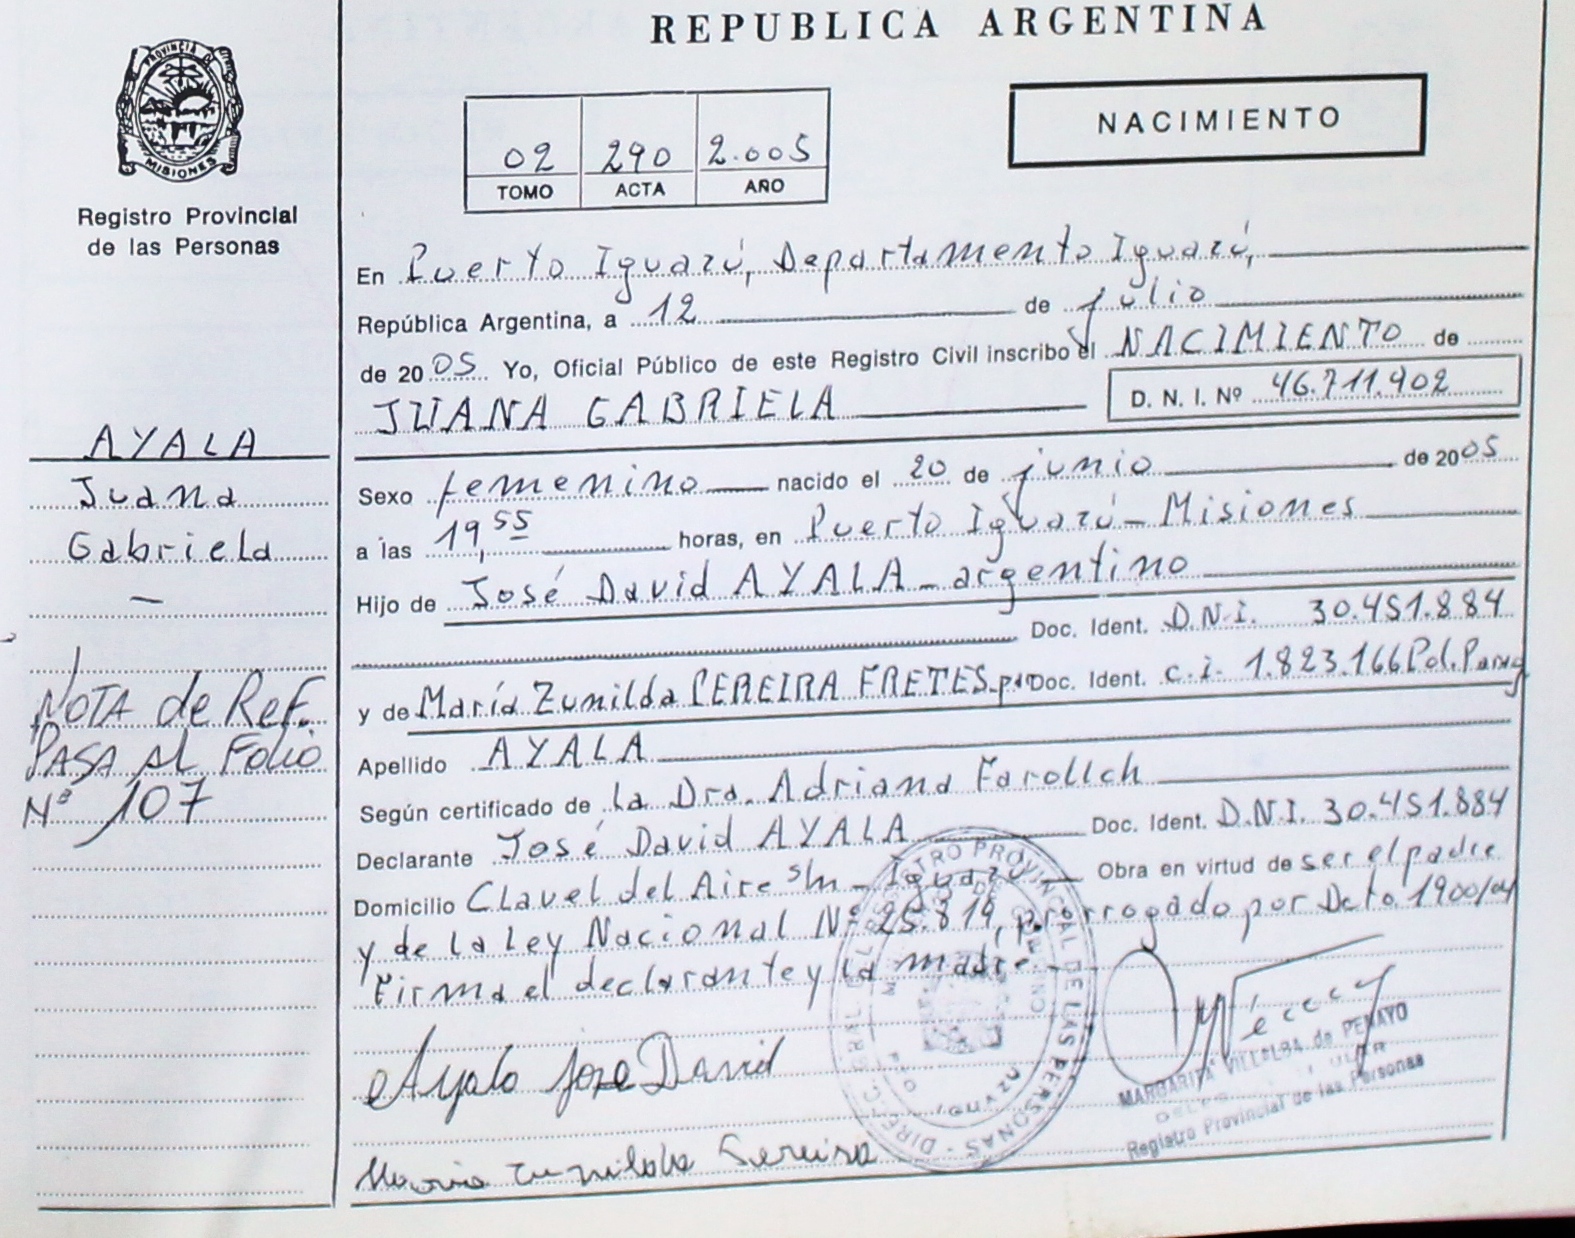 REPUBLICA ARGENTINA
PROVINCIA DE
MISIONES
Registro Provincial
de las Personas
NACIMIENTO
02 290 2.005
TOMO ACTA AÑO
En Puerto Iguazú, Departamento Iguazú,
República Argentina, a 12 de julio
de 2005 Yo, Oficial Público de este Registro Civil inscribo el NACIMIENTO de
JUANA GABRIELA D. N. I. Nº 46.711.902
AYALA
Juana
Gabriela
Sexo femenino nacido el 20 de junio de 2005
a las 19,55 horas, en Puerto Iguazú - Misiones
Hijo de José David AYALA - argentino
Doc. Ident. D.N.I. 30.451.884
y de María Zunilda PEREIRA FRETES - par Doc. Ident. C.I. 1.823.166 Pol. Parag
NOTA de Ref.
PASA AL Folio
Nº 107
Apellido AYALA
Según certificado de la Dra. Adriana Farollch
Declarante José David AYALA Doc. Ident. D.N.I. 30.451.884
Domicilio Clavel del Aire s/n - Iguazú Obra en virtud de ser el padre
y de la Ley Nacional Nº 25.819, prorrogado por Dcto. 1900/04
Firma el declarante y la madre.
Ayala Jose David
Maria Zunilda Pereira
MARGARITA VILLALBA de PENAYO
Registro Provincial de las Personas
REGISTRO PROVINCIAL DE LAS PERSONAS
IGUAZU